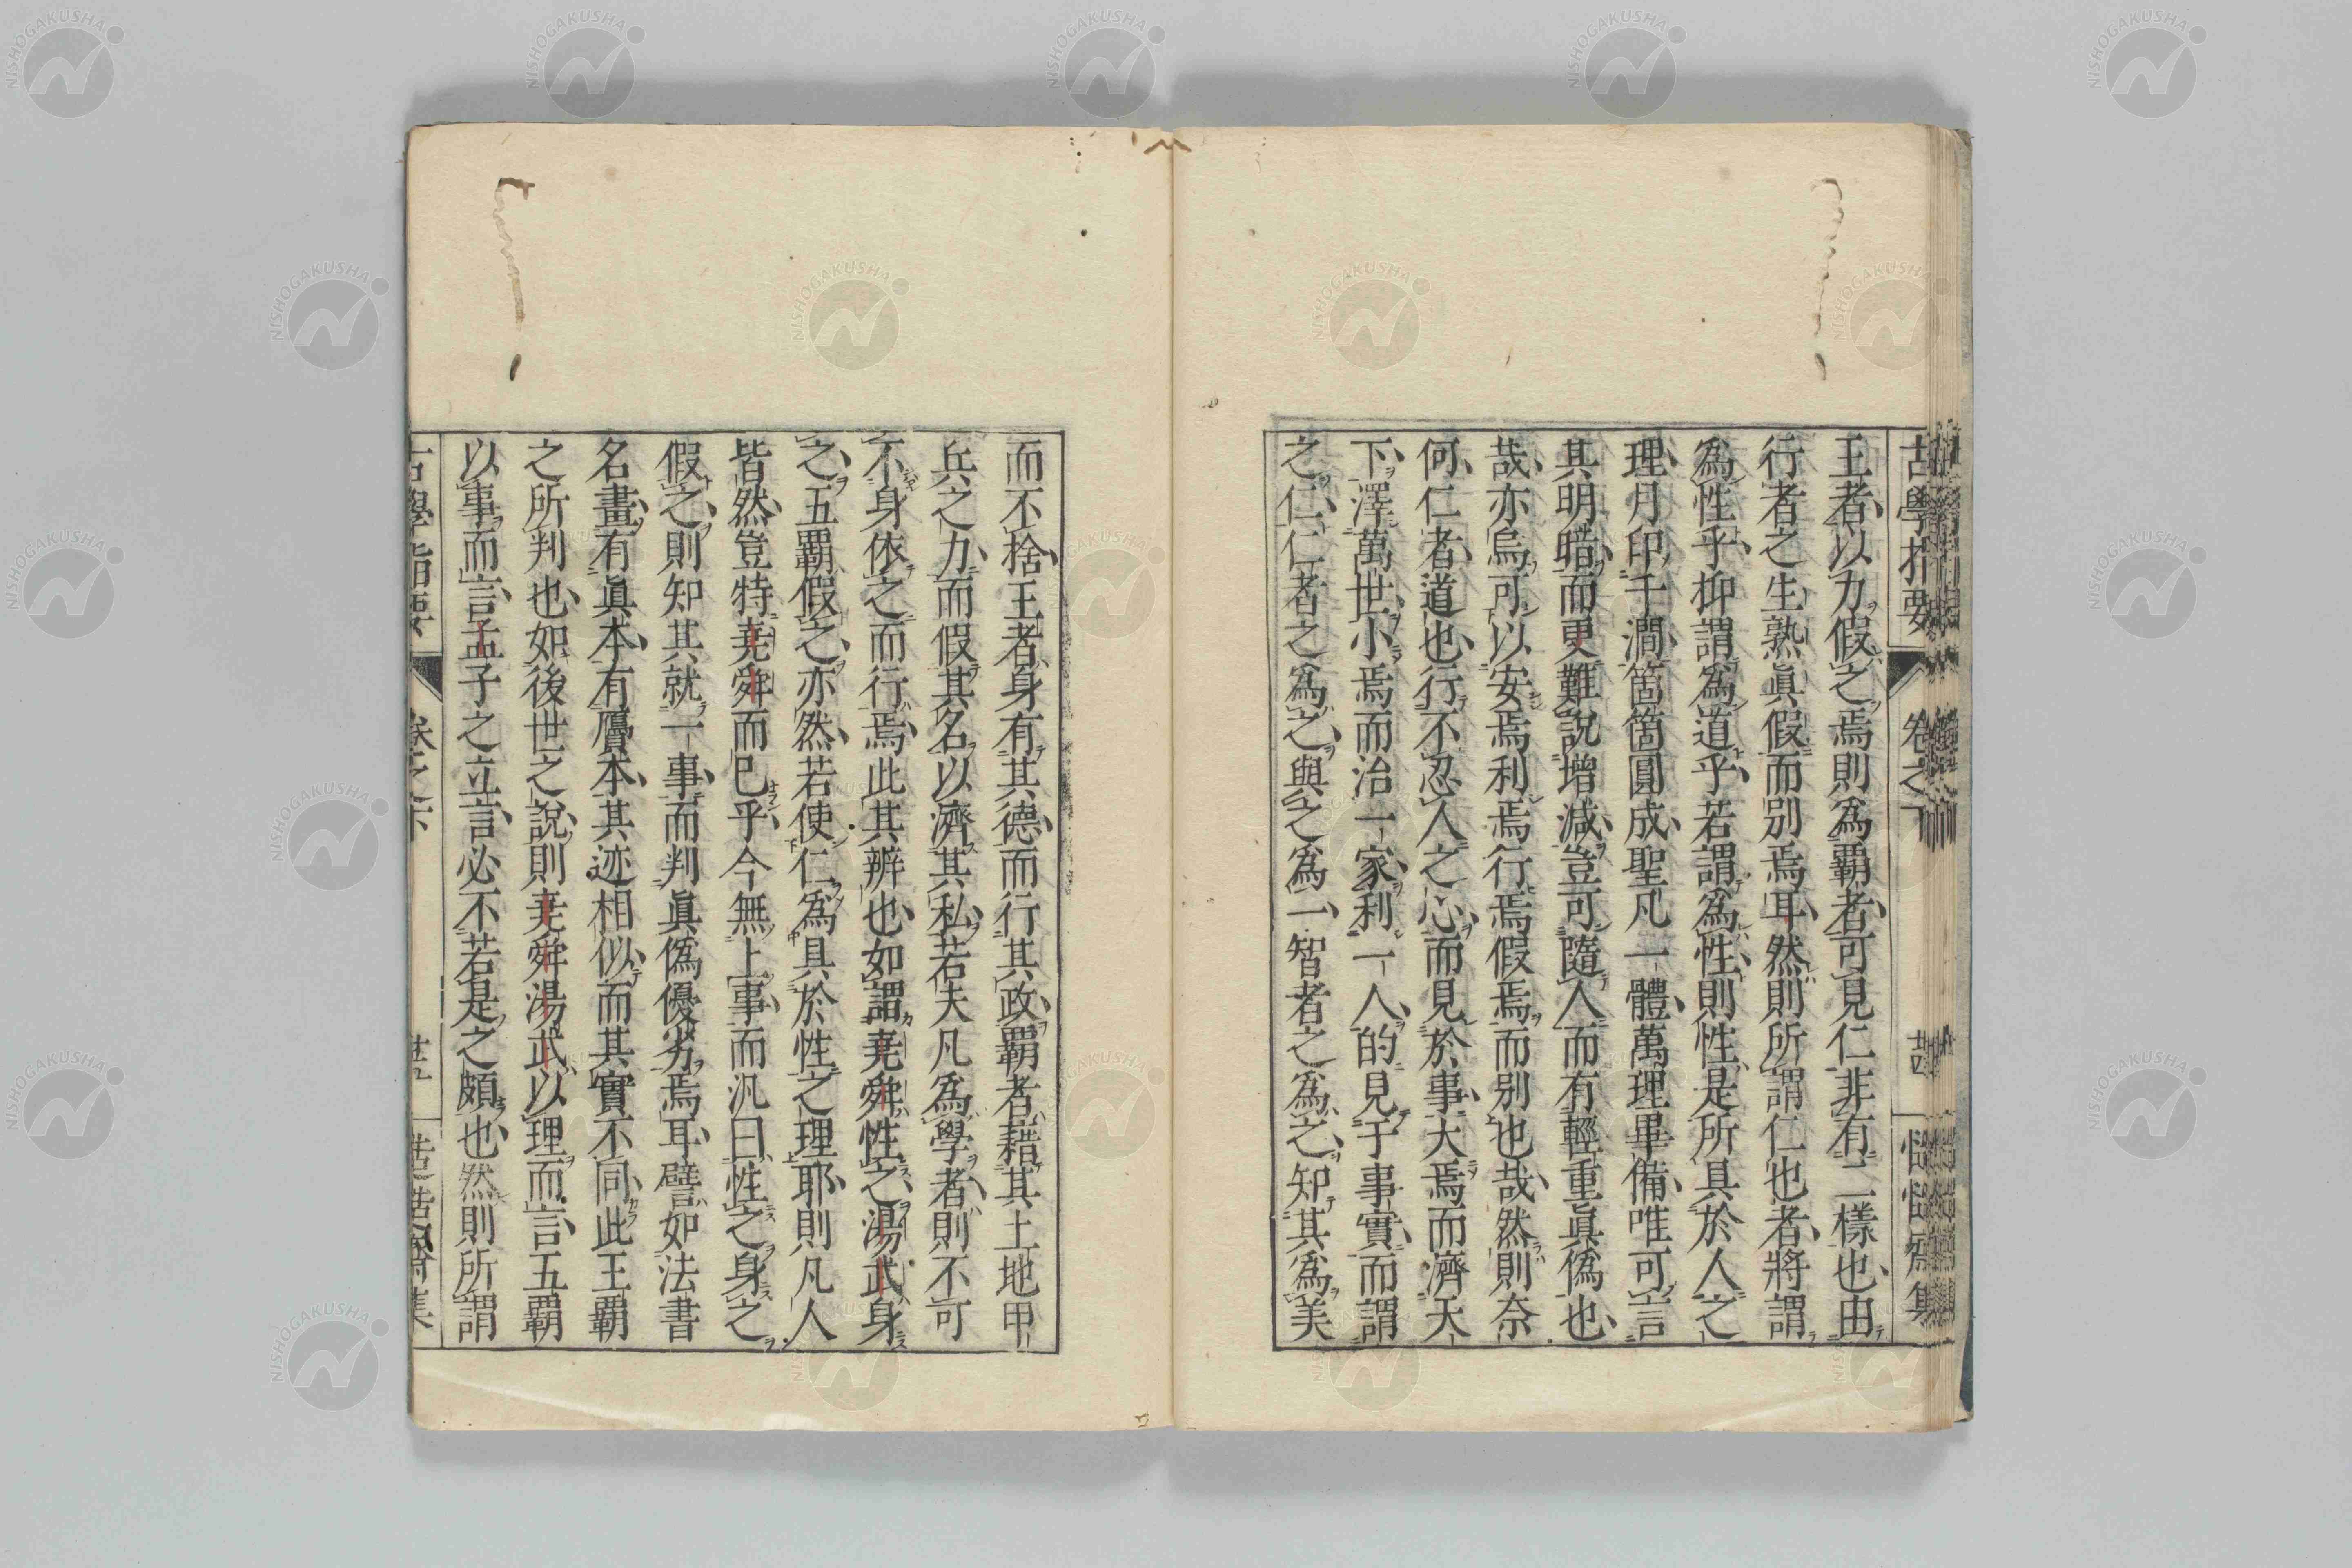 古學指要 卷之下 慥慥齋集
王者以力假之焉則爲覇者可見仁非有二樣也由
行者之生熟眞假而別焉耳然則所謂仁也者將謂
爲性乎抑謂爲道乎若謂爲性則性是所具於人之
理月印千澗箇箇圓成聖凡一體萬理畢備唯可言
其明暗而更難說增減豈可隨人而有輕重眞僞也
哉亦烏可以安焉利焉行焉假焉而別也哉然則奈
何仁者道也行不忍人之心而見於事大焉而濟天
下澤萬世小焉而治一家利一人的見于事實而謂
之仁仁者之爲之與之爲一智者之爲之知其爲美
而不捨王者身有其德而行其政覇者藉其土地甲
兵之力而假其名以濟其私若夫凡爲學者則不可
不身依之而行焉此其辨也如謂堯舜性之湯武身
之五覇假之亦然若使仁爲具於性之理耶則凡人
皆然豈特堯舜而已乎今無上事而汎曰性之身之
假之則知其就一事而判眞僞優劣焉耳譬如法書
名畫有眞本有贋本其迹相似而其實不同此王覇
之所判也如後世之說則堯舜湯武以理而言五覇
以事而言孟子之立言必不若是之頗也然則所謂
古學指要 卷之下
NISHOGAKUSHA